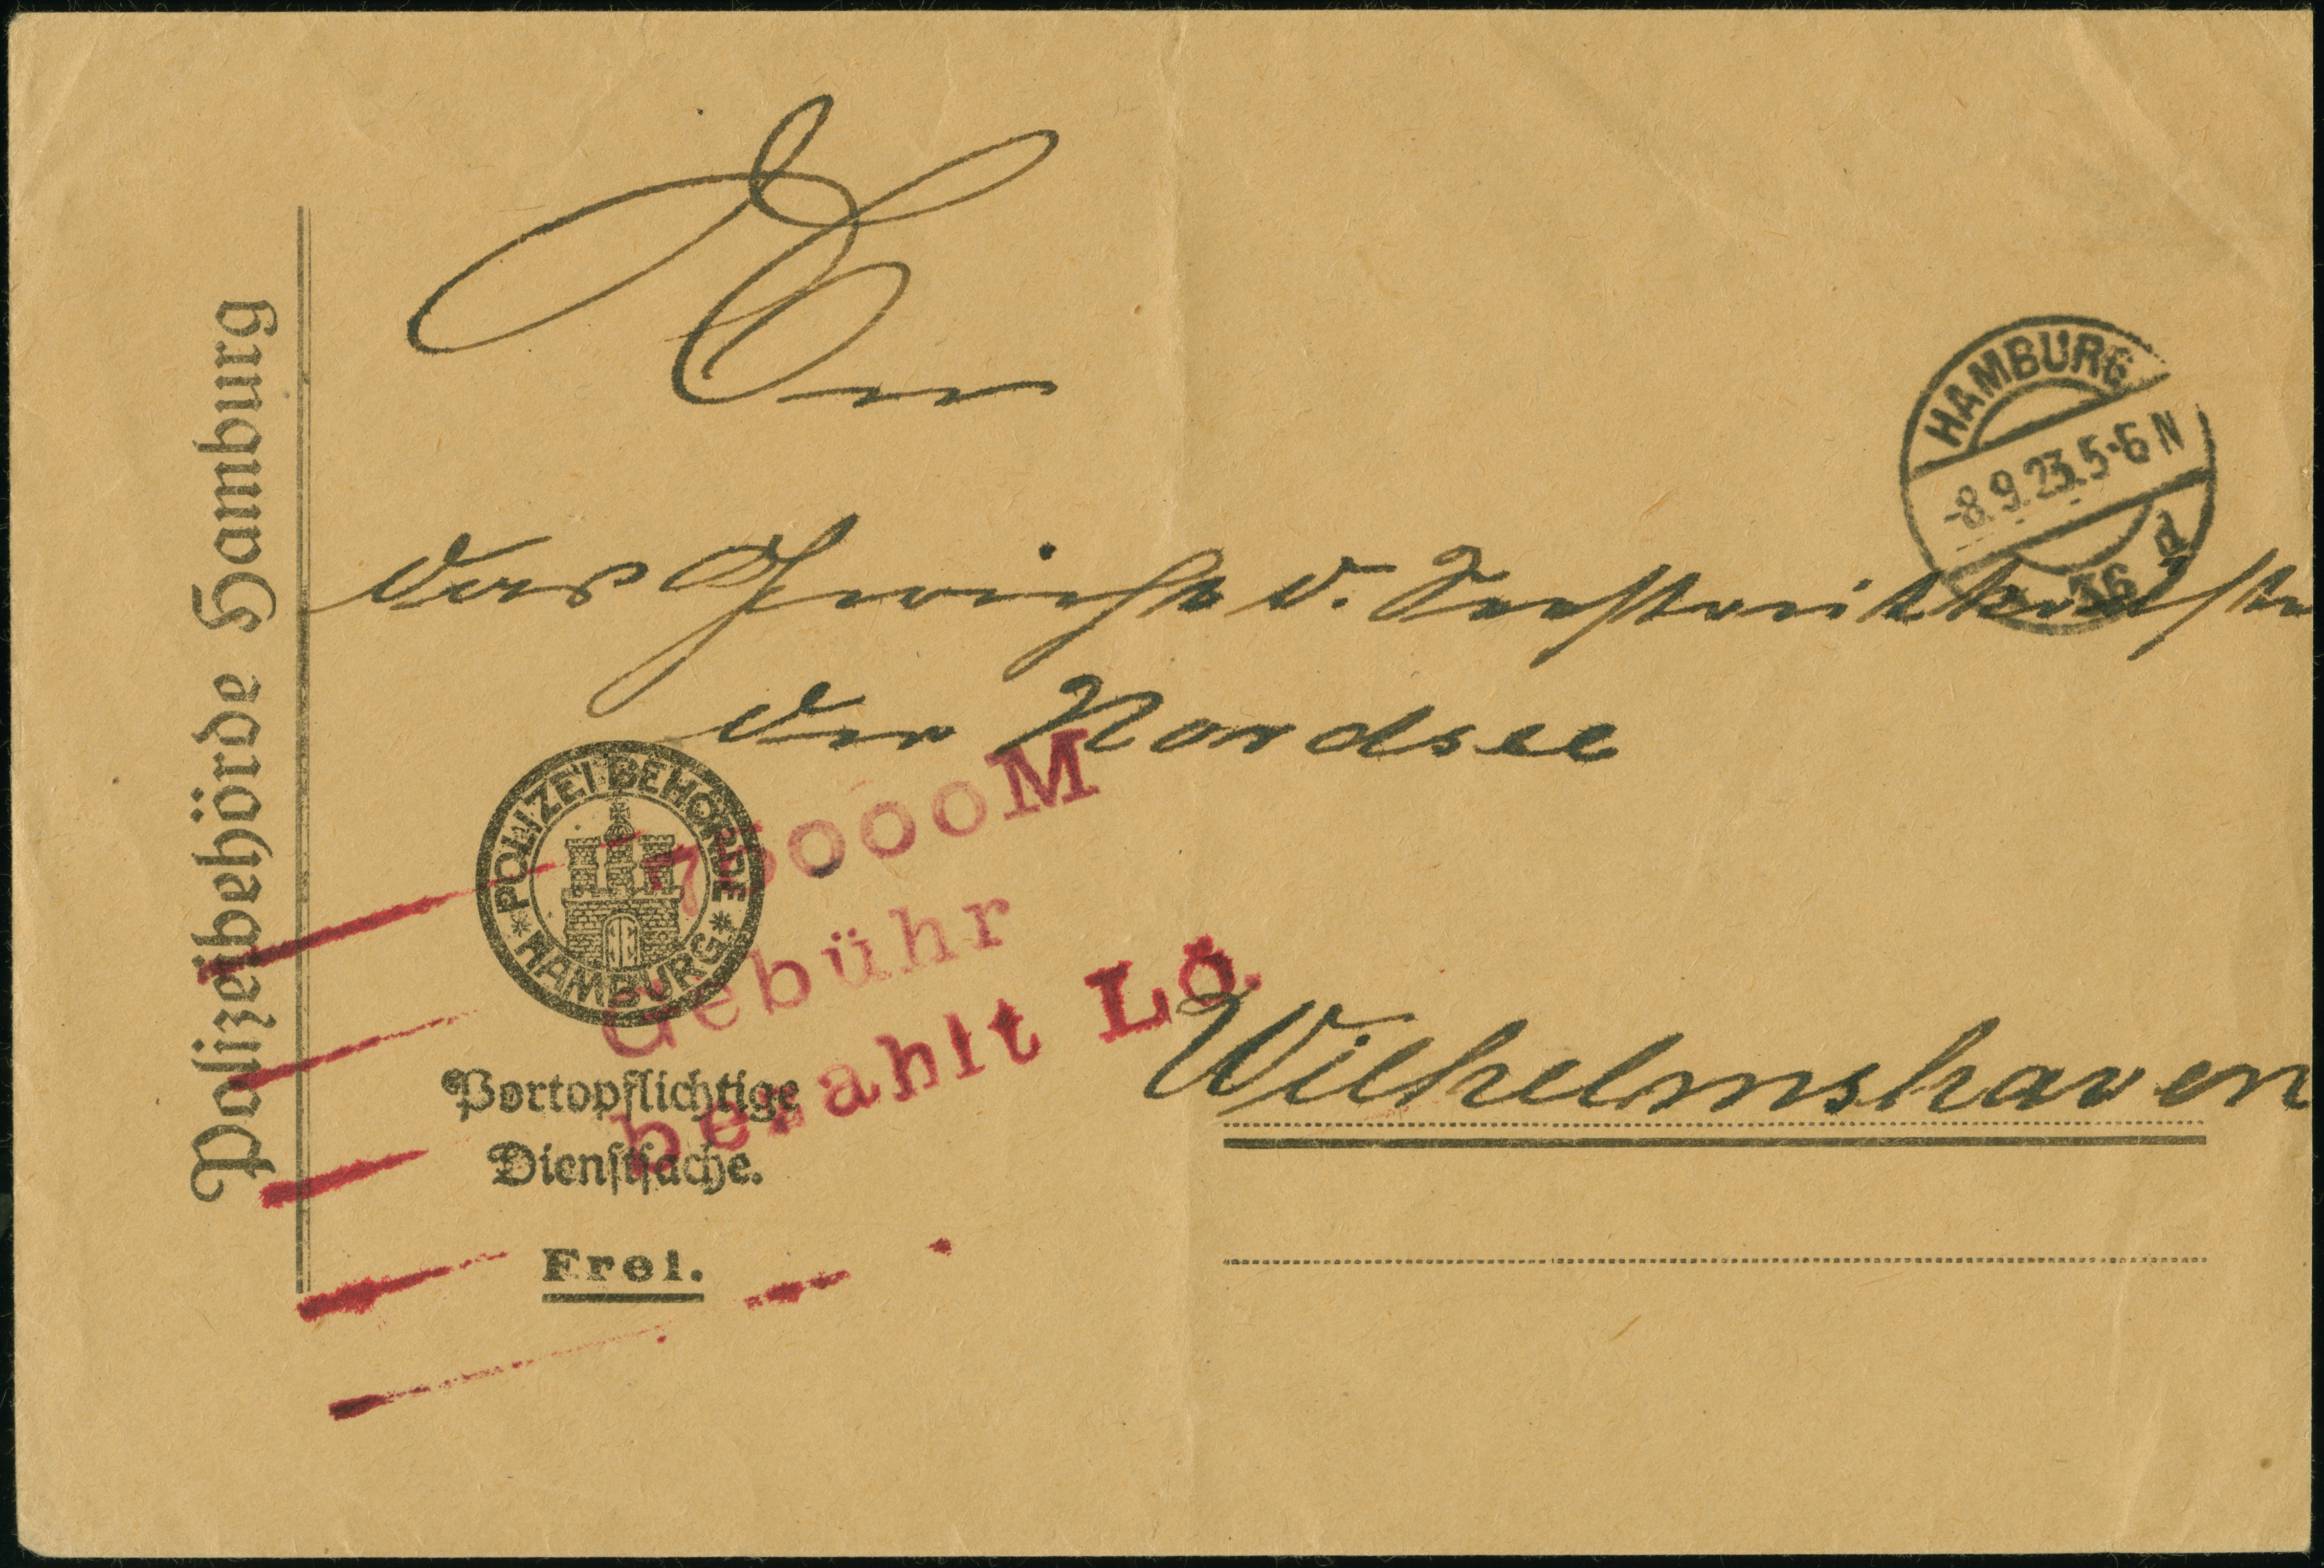 Polizeibehörde Hamburg
An
HAMBURG
-8.9.23.5-6 N
36 d
das Gericht d. Seestreitkräfte
der Nordsee
POLIZEIBEHÖRDE
* HAMBURG *
75000M
Gebühr
bezahlt Lö.
Wilhelmshaven
Portopflichtige
Dienstsache.
Frei.